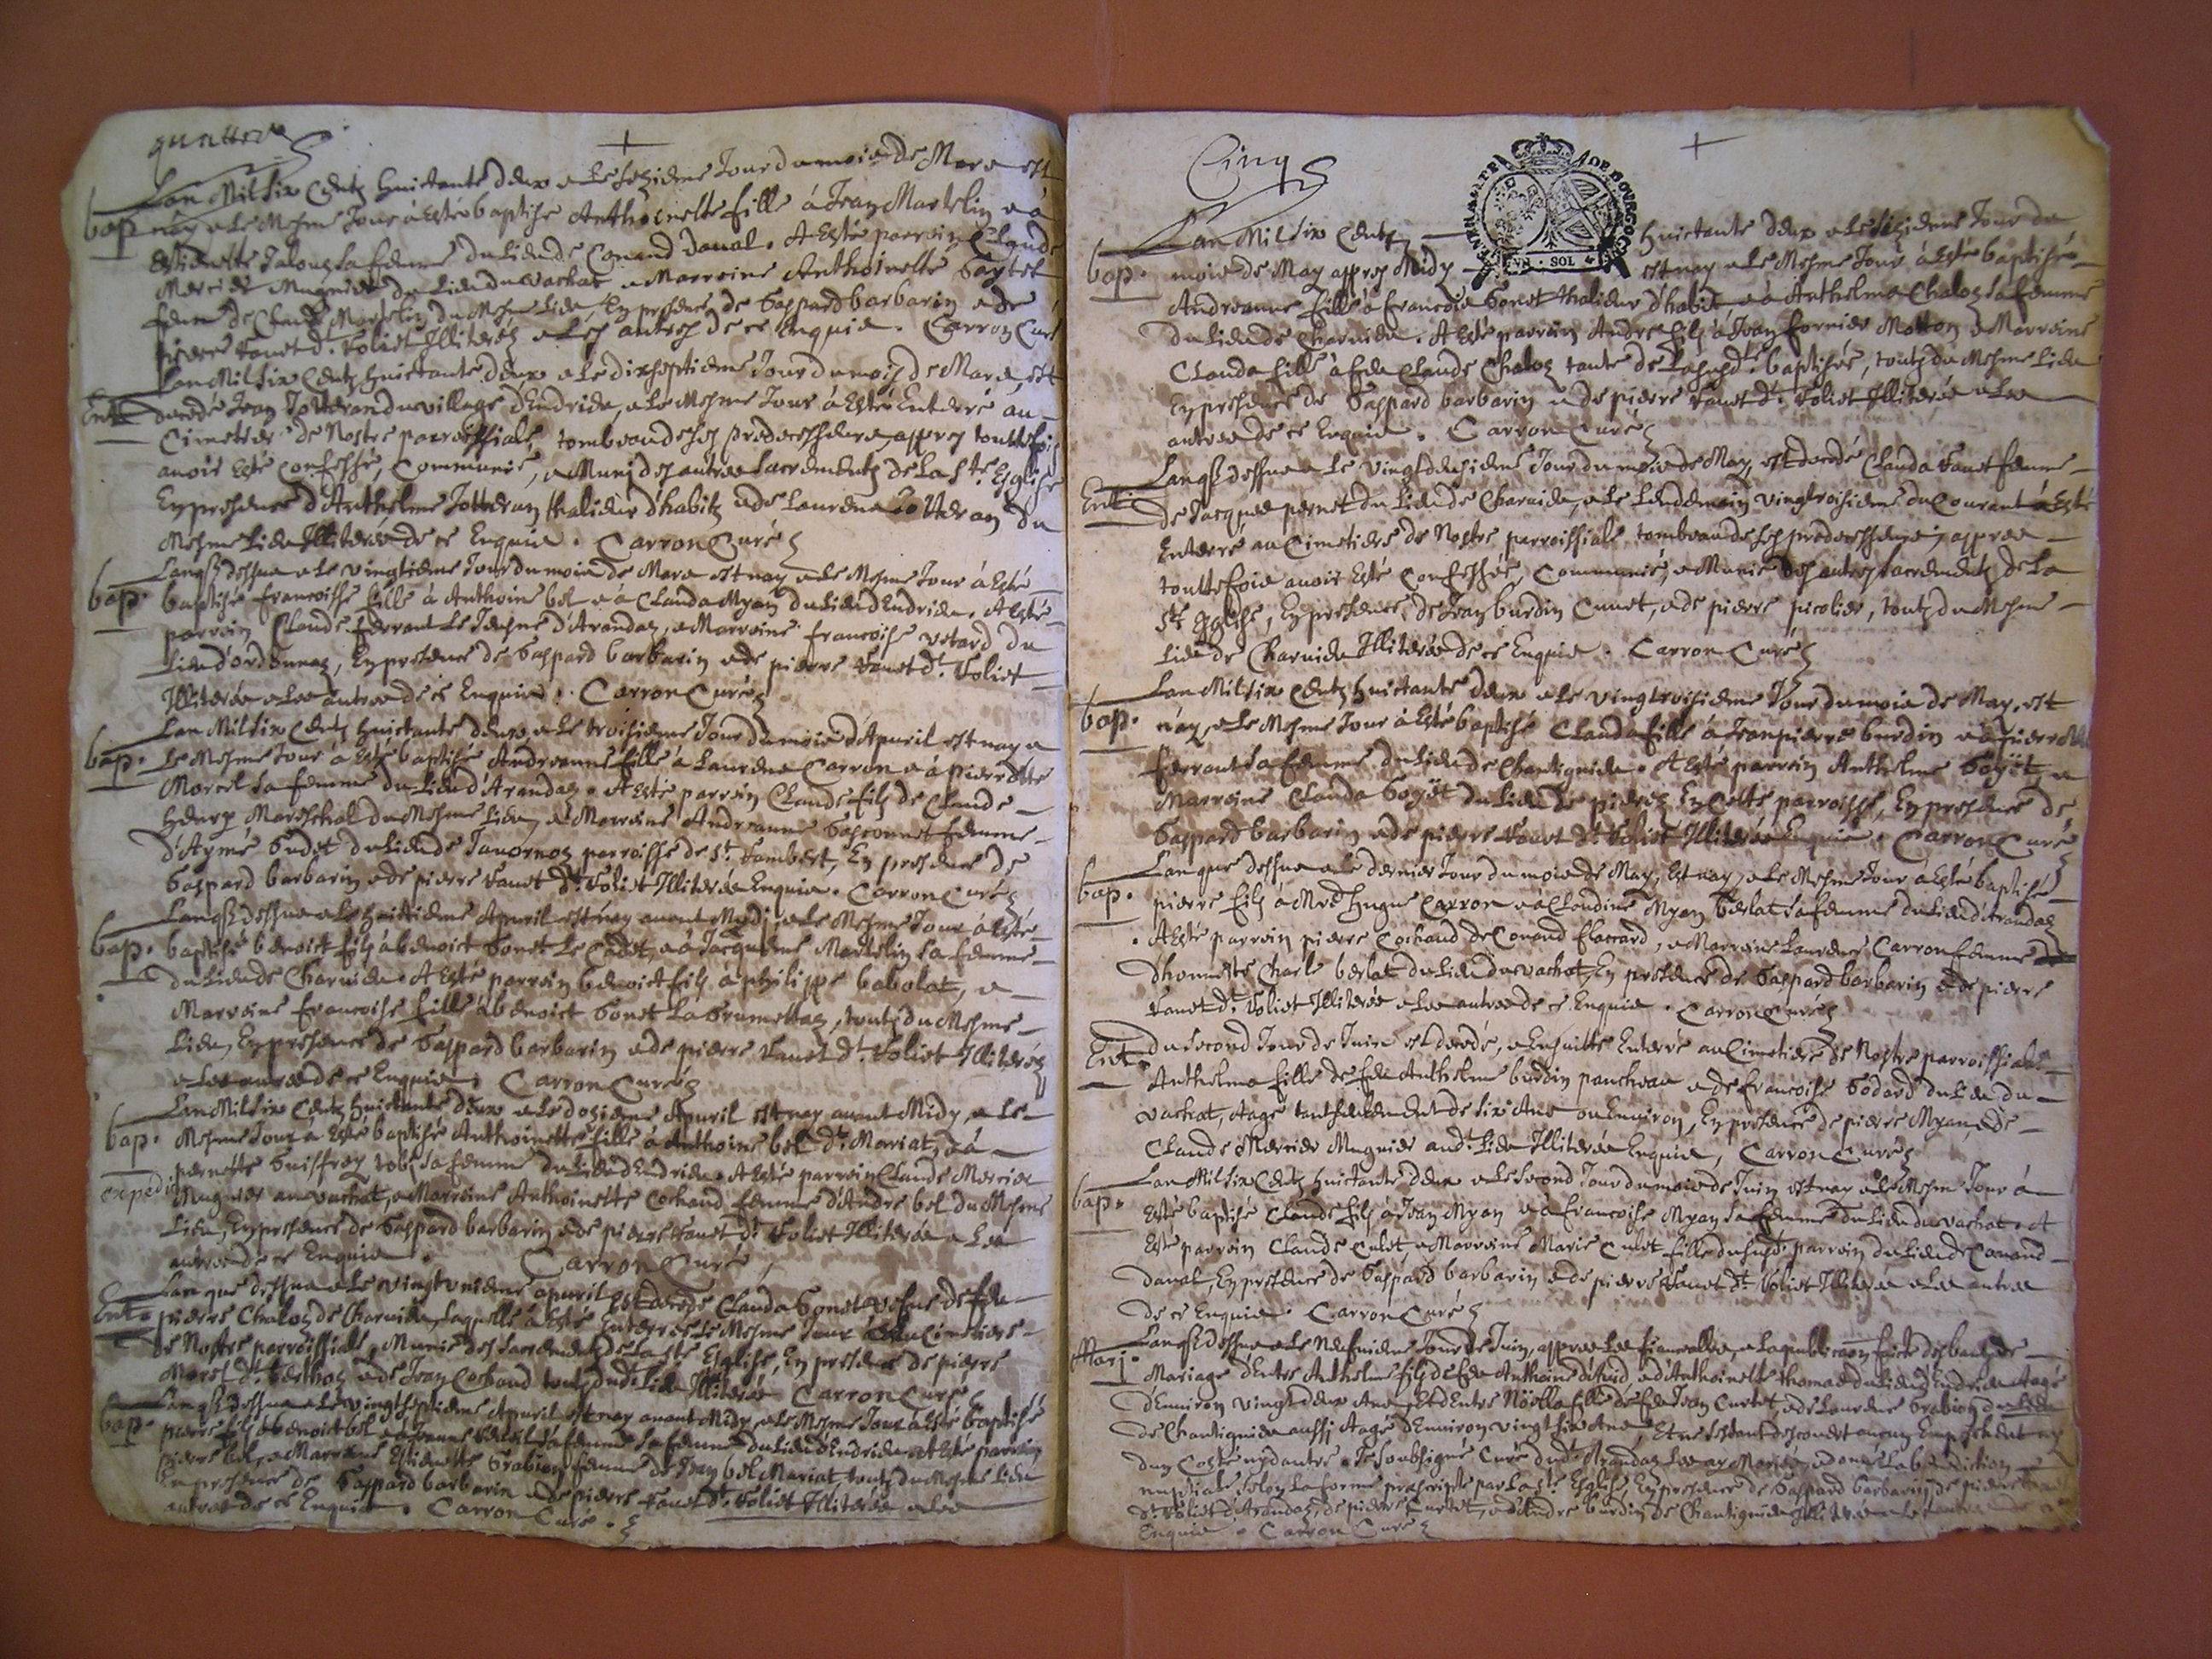 quattre
Lan Mil Six Centz huictante deux e le seziéme Jour du mois de Mars est
bap nay e le Mesme Jour à Esté baptisé Anthoinette fille à Jean Martelin e à
Estiennette Jalouz sa femme du lieu de Conand daval. A Esté parrein Claude
Mercier Mugnier du Lieu du vachat e Marreine Anthoinette
feme de Claude Martelin du Mesme Lieu, En presence de Gaspard barbarin e de
pierre vanet dt. Voliet Illiterez e Les autres de ce Enquis. Carron Curé
Lan Mil Six Centz huictante deux e le dixseptiéme Jour du mois de Mars, est
Ent. decedé Jean Jotteran du village dEndrieu, e le Mesme Jour à Esté Enterré au
Cimetiére de Nostre parroissiale, tombeau de ses predecesseurs, appres touttefois
avoir Esté confessé, Communié, e Muni des autres sacrementz de La Ste. Eglise
En presence d'Anthelme Jotteran thalieur dhabitz e de Laurens Jotteran du
Mesme Lieu Illiterés de ce Enquis. Carron Curé
Lanqs. dessus e le vingtiéme Jour du mois de Mars est nay e le Mesme Jour à Esté
bap. baptisé francoise fille à Anthoine bel e à Clauda Myan du Lieu dEndrieu. A Esté
parrein Claude ferrant le Jeusne d'Arandaz, e Marreine francoise vetard du
Lieu d'ordonnaz, En presence de Gaspard barbarin e de pierre vanet dt. Voliet
Illiterés e Les autres de ce Enquis. Carron Curé
Lan Mil Six Centz huictante deux e le troisiéme Jour du mois d'Apuril est nay e
bap. Le Mesme Jour à Esté baptisé Andreanne fille à Laurens Carron e à pierrette
Morel sa femme du Lieu d'Arandaz. A Esté parrein Claude fils de Claude
Mareschal du Mesme Lieu, e Marreine Andreanne femme
d'Aymé Gudet du Lieu de Javornoz parroisse de St. Rambert, En presence de
Gaspard barbarin e de pierre vanet dt. Voliet Illiterés Enquis. Carron Curé
Lanqs. dessus e le huictiéme Apuril est nay avant Mydi, e le Mesme Jour à Esté
bap. baptisé benoict fils à benoict Gonet Le Cadet, e à Jacqueme Martelin sa femme
du Lieu de Charvieu. A Esté parrein benoict fils à philippe babolat, e
Marreine francoise fille à benoict Gonet La Grumettaz, toutz du Mesme
Lieu, En presence de Gaspard barbarin e de pierre vanet dt. Voliet Illiteréz
e Les autres de ce Enquis. Carron Curé
Lan Mil Six Centz huictante deux e le doziéme Apuril est nay avant Midy, e Le
bap. Mesme Jour à Esté baptisé Anthoinette fille à Anthoine bel dt. Mariat, e à
pernette Guiffrey sa femme du Lieu dEndrieu. A Esté parrein Claude Mercier
expedié Mugnier au vachat, e Marreine Anthoinette Cochand femme d'André bel du Mesme
Lieu, En presence de Gaspard barbarin e de pierre vanet dt. Voliet Illiterés e Les
autres de ce Enquis. Carron Curé
Lan que dessus e le vingtuniéme apuril Est decedé Clauda Gonet vefve de feu
Ent. pierre Chaloz de Charvieu, Laquelle à Esté Enterrée le Mesme Jour au Cimetiére
de Nostre parroissiale, Munie des sacrementz de La Ste Eglise, En presence de pierre
Morel dt. e de Jean Cochand toutz dudt. Lieu Illiterés Carron Curé
Lanqs. dessus e Le vingtseptiéme Apuril est nay avant Midy, e le Mesme Jour à Esté baptisé
bap. pierre fils à benoict bel e à Jeanne sa femme du Lieu dEndrieu. A Esté parrein
pierre bel, e Marreine Estiennette Grabion femme de Jean bel Mariat, toutz du Mesme Lieu
En presence de Gaspard barbarin e de pierre vanet dt. Voliet Illiterés e Les
autres de ce Enquis. Carron Curé.
Cinq
GEN. ET ALTE DE BOVRGOG
VN. SOL 4
Lan Mil Six Centz huictante deux e le seziéme Jour du
bap. mois de May appres Midy est nay e le Mesme Jour à Esté baptisé
Andreanne fille à francois Gonet thalieur d'habit e à Anthelma Chaloz sa femme
du Lieu de Charvieu. A Esté parrein André fils à Jean fornier Motton e Marreine
Clauda fille à feu Claude Chaloz tante de La susdt. baptisée, toutz du Mesme Lieu
En presence de Gaspard barbarin e de pierre vanet dt. Voliet Illiterés e Les
autres de ce Enquis. Carron Curé
Lanqs. dessus e le vingtdeusiéme Jour du mois de May, est decedé Clauda vanet femme
Ent. de Jacques pernet du Lieu de Charvieu, e le Lendemain vingtroisiéme du Courant à Esté
Enterré au Cimetiére de Nostre parroissiale tombeau de ses predecesseurs, appres
touttefois avoir Esté Confessée, Communié, e Munie des autres sacrementz de La
Ste. Eglise, En presence de Jean burdin Cunet, e de pierre picolier, toutz du Mesme
Lieu de Charvieu Illiterés de ce Enquis. Carron Curé
Lan Mil Six Centz huictante deux e le vingtroisiéme Jour du mois de May, est
bap. nay, e le Mesme Jour à Esté baptisé Clauda fille à Jean pierre burdin e à pierrette
ferrant sa femme du Lieu de Chantignieu. A Esté parrein Anthelme Goyët, e
Marreine Clauda Goyët du Lieu de En Cette parroisse, En presence de
Gaspard barbarin e de pierre vanet dt. Voliet Illiterés Enquis. Carron Curé
Lan que dessus e le dernier Jour du mois de May, Est nay, e le Mesme Jour à Esté baptisé
bap. pierre fils à Mre Hugue Carron e à Claudine Myan berlat sa femme du Lieu d'Arandaz
. A Esté parrein pierre Cochand de Conand flaccard, e Marreine Laurence Carron femme
dhonneste Charle berlat du Lieu du vachat, En presence de Gaspard barbarin e de pierre
vanet dt. Voliet Illiterés e Les autres de ce Enquis. Carron Curé
Du second Jour de Juin est decedé, e Ensuitte Enterré au Cimetiére de Nostre parroissiale
Ent. Anthelma fille de feu Anthelme burdin pancheau e de francoise Godard du Lieu du
vachat, Agé tant seulement de six Ans ou Environ, En presence de pierre Myan, e de
Claude Mercier Mugnier audt. Lieu Illiterés Enquis, Carron Curé
Lan Mil Six Centz huictante deux e le second Jour du mois de Juin est nay e le Mesme Jour à
bap. Esté baptisé Claude fils à Jean Myan e à francoise Myan sa femme du Lieu du vachat. A
Esté parrein Claude Culet, e Marreine Marie Culet fille du susdt. parrein du Lieu de Conand
daval, En presence de Gaspard barbarin e de pierre vanet dt. Voliet Illiterés e Les autres
de ce Enquis. Carron Curé
Lanqs. dessus e le Neufviéme Jour de Juin, appres Les fiancallies, e La publicaon faicte des bans de
Mari. Mariage dEntre Anthelme fils de feu Anthoine e d'Anthoinette thomas du Lieu dEndrieu Agé
dEnviron vingtdeux Ans, Et dEntre Noëlla fille de feu Jean Curtet, e de Laurence Grabion du Lieu
de Chantignieu aussj Agé dEnviron vingtsix Ans, Et ne sestant descouvert aucun Empeschement
dun Costé ny dautre, Je soubsigné Curé dudt. Arandaz Les ay Mariés, e donné La benediction
nuptiale selon La forme prescripte par La Ste. Eglise, En presence de Gaspard barbarin, de pierre
dt. Voliet d'Arandaz, de pierre Curtet, e d'André burdin de Chantignieu Illiterés
Enquis. Carron Curé